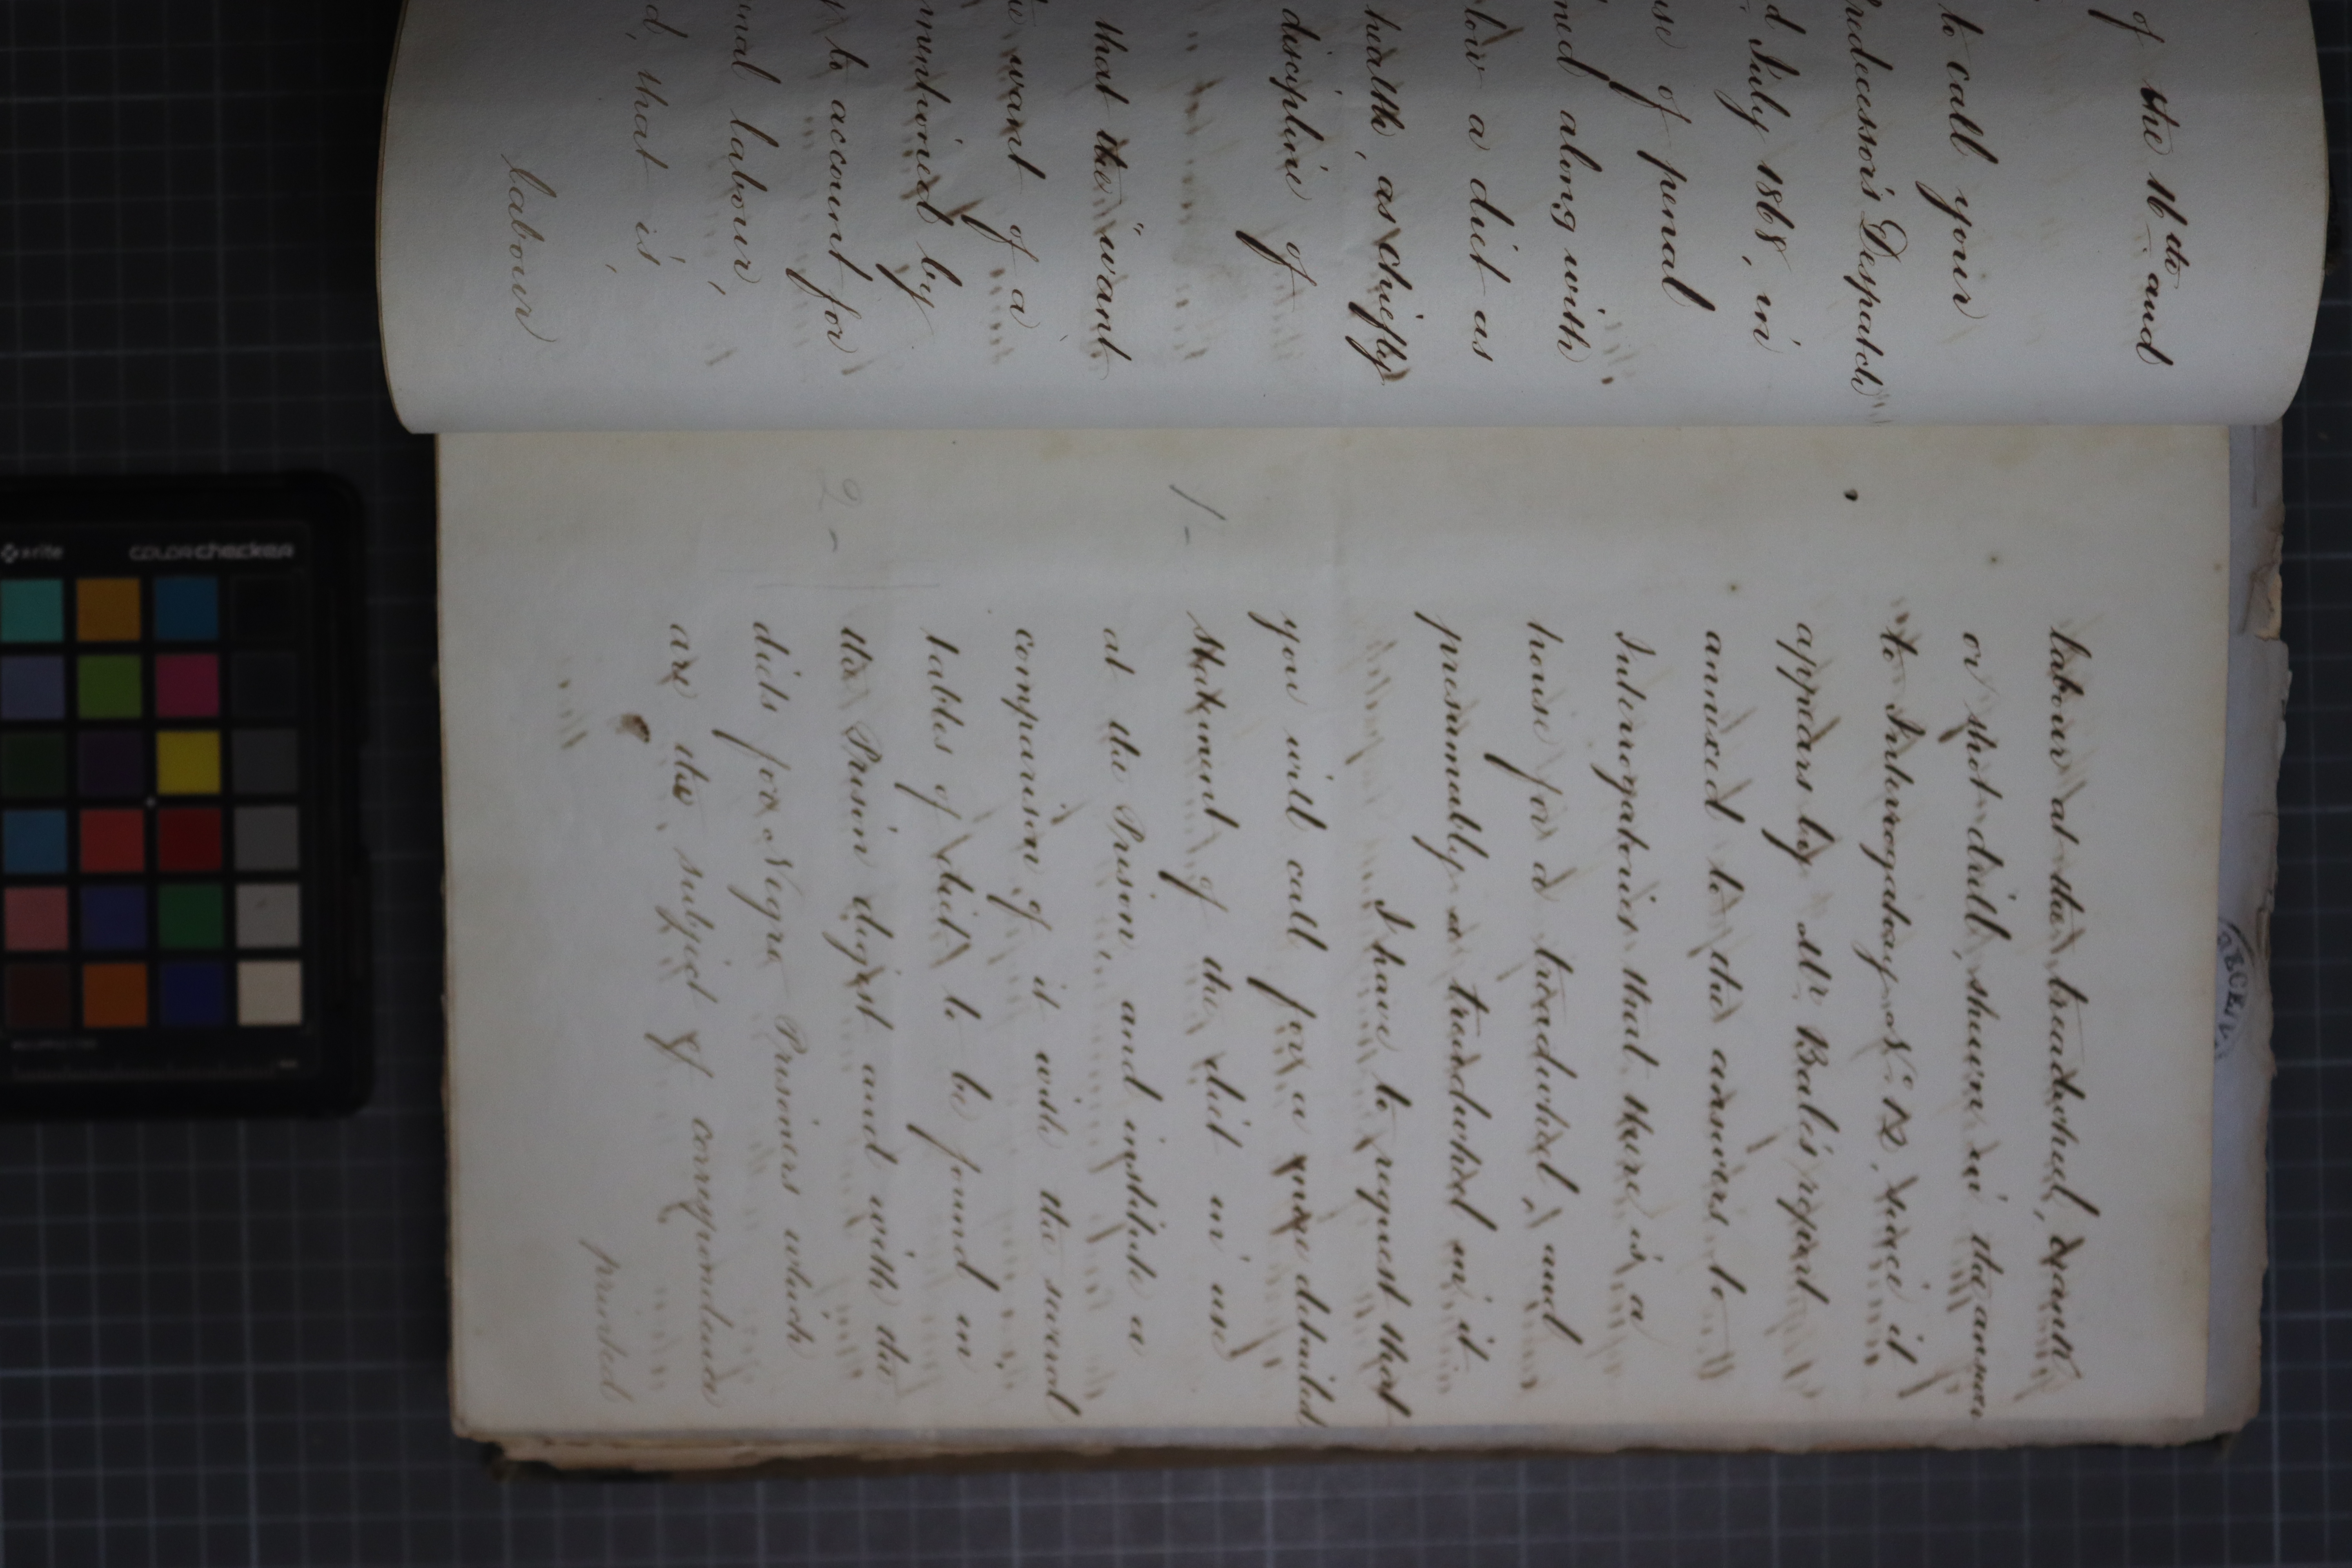 of the 16th and
to call your
redecessor's Despatch
d July 1868, in
se of penal
ned along with
low a diet as
health, as chiefly
discipline of
that the "want
want of a
by
to account for
nal labour,
d, that is,
labour
labour at the treadwheel, crank
or shot-drill, shewn in the answer
to Interrogatory No. 12, since it
appears by Mr. Bale's report
annexed to the answers to
Interrogatories that there is a
house for a treadwheel, and
presumably a treadwheel in it
I have to request that
you will call for a detailed
Statement of the diet in use
at the Prison and institute a
comparison of it with the several
tables of diet to be found in
the Prison digest and with the
diets for Negro Prisoners which
are the subject of correspondence
printed
1 -
2 -
x-rite
colorchecker